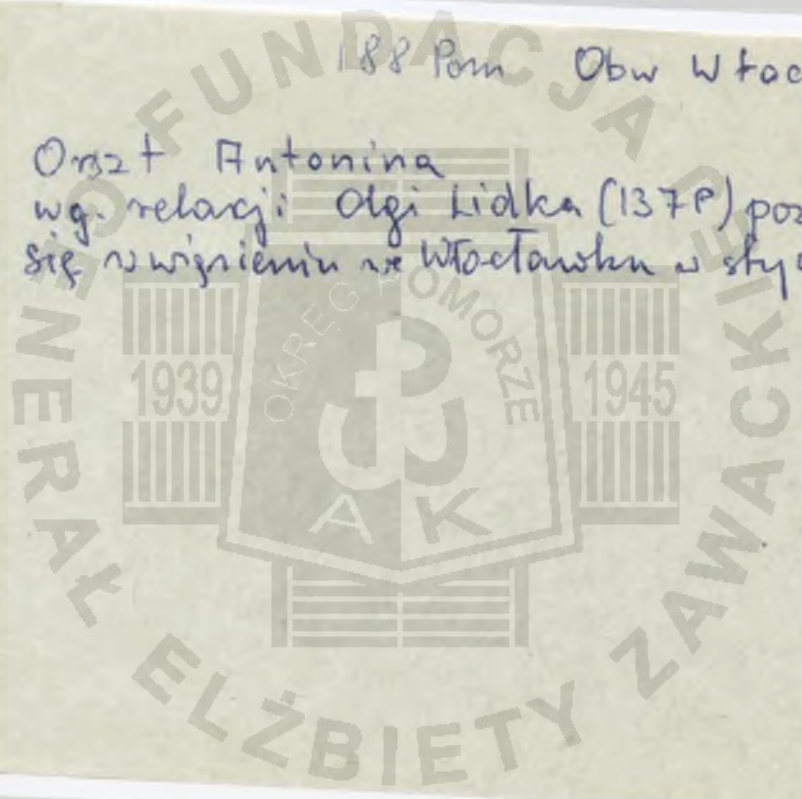 188 Pom Obw Włoc
Orszt Antonina
wg. relacji Olgi Lidka (137P) poz
się w więzieniu we Włocławku w styc
FUNDACJA
GENERAŁ ELŻBIETY ZAWACKIEJ
OKRĘG POMORZE
1939 1945
A K